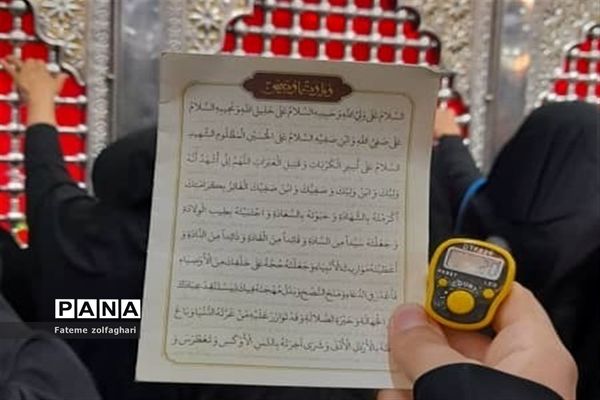 زیارت اربعین
السَّلامُ عَلى وَلِيِّ اللّٰهِ وَحَبيبِهِ السَّلامُ عَلى خَليلِ اللّٰهِ وَنَجيبِهِ السَّلامُ
عَلى صَفِيِّ اللّٰهِ وَابْنِ صَفِيِّهِ السَّلامُ عَلَى الْحُسَيْنِ الْمَظْلُومِ الشَّهيدِ
السَّلامُ عَلى اَسيرِ الْكُرُباتِ وَ قَتيلِ الْعَبَراتِ اَللّٰهُمَّ اِنّى اَشْهَدُ اَنَّهُ
وَلِيُّكَ وَ ابْنُ وَلِيِّكَ وَ صَفِيُّكَ وَ ابْنُ صَفِيِّكَ الْفائِزُ بِكَرامَتِكَ
اَكْرَمْتَهُ بِالشَّهادَةِ وَ حَبَوْتَهُ بِالسَّعادَةِ وَ اجْتَبَيْتَهُ بِطيبِ الْوِلادَةِ
وَ جَعَلْتَهُ سَيِّداً مِنَ السّادَةِ وَ قآئِداً مِنَ الْقادَةِ وَ ذآئِداً مِنَ الذّادَةِ وَ
اَعْطَيْتَهُ مَواريثَ الْاَنْبِيآءِ وَ جَعَلْتَهُ حُجَّةً عَلى خَلْقِكَ مِنَ الْاَوْصِيآءِ
فَاَعْذَرَ فِى الدُّعآءِ وَ مَنَحَ النُّصْحَ وَ بَذَلَ مُهْجَتَهُ فيكَ لِيَسْتَنْقِذَ عِبادَكَ
الْجَهالَةِ وَ حَيْرَةِ الضَّلالَةِ وَ قَدْ تَوازَرَ عَلَيْهِ مَنْ غَرَّتْهُ الدُّنْيا وَ باعَ
بِالْاَرْذَلِ الْاَدْنى وَ شَرى آخِرَتَهُ بِالثَّمَنِ الْاَوْكَسِ وَ تَغَطْرَسَ وَ
RESET
LED
PANA
Fateme zolfaghari